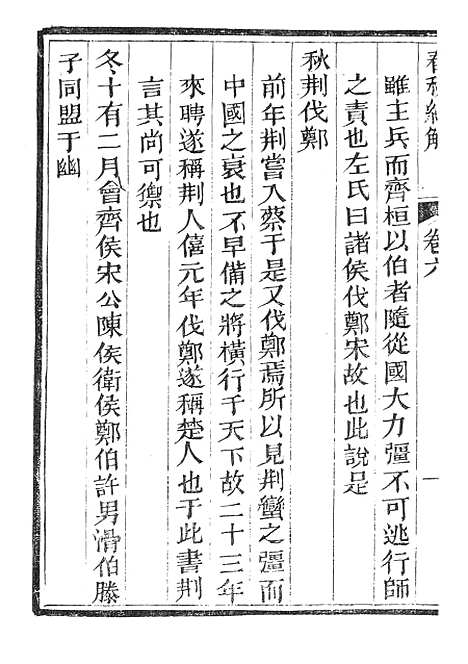 春秋經解 卷六 一
雖主兵而齊桓以伯者隨從國大力彊不可逃行師
之責也左氏曰諸侯伐鄭宋故也此說是
秋荆伐鄭
前年荆嘗入蔡于是又伐鄭焉所以見荆蠻之彊而
中國之衰也不早備之將橫行于天下故二十三年
來聘遂稱荆人僖元年伐鄭遂稱楚人也于此書荆
言其尚可禦也
冬十有二月會齊侯宋公陳侯衛侯鄭伯許男滑伯滕
子同盟于幽